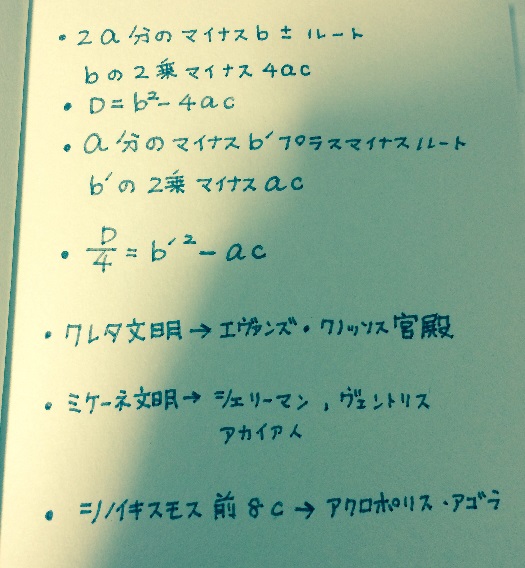 ・2a分のマイナスb±ルート
bの2乗マイナス4ac
・D=b²-4ac
・a分のマイナスb′プラスマイナスルート
b′の2乗マイナスac
・D/4=b′²-ac
・クレタ文明→エヴァンズ・クノッソス宮殿
・ミケーネ文明→シュリーマン,ヴェントリス
アカイア人
・シノイキスモス 前8c→アクロポリス・アゴラ